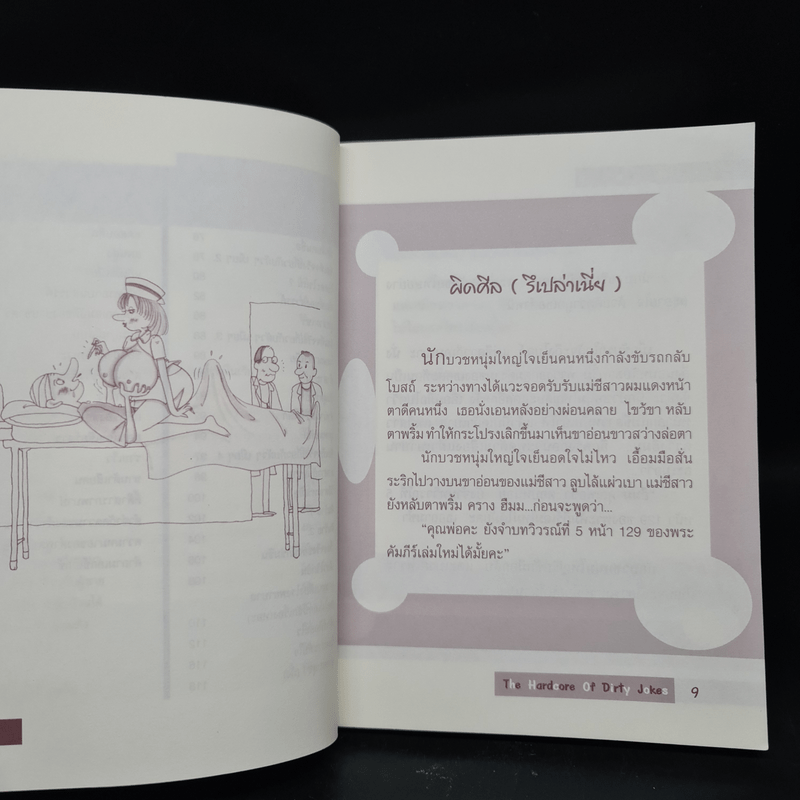 ผิดศีล ( รึเปล่าเนี่ย )
นักบวชหนุ่มใหญ่ใจเย็นคนหนึ่งกำลังขับรถกลับ
โบสถ์ ระหว่างทางได้แวะจอดรับรับแม่ชีสาวผมแดงหน้า
ตาดีคนหนึ่ง เธอนั่งเอนหลังอย่างผ่อนคลาย ไขว้ขา หลับ
ตาพริ้ม ทำให้กระโปรงเลิกขึ้นมาเห็นขาอ่อนขาวสว่างล่อตา
นักบวชหนุ่มใหญ่ใจเย็นอดใจไม่ไหว เอื้อมมือสั่น
ระริกไปวางบนขาอ่อนของแม่ชีสาว ลูบไล้แผ่วเบา แม่ชีสาว
ยังหลับตาพริ้ม คราง ฮืมม...ก่อนจะพูดว่า...
"คุณพ่อคะ ยังจำบทวิวรณ์ที่ 5 หน้า 129 ของพระ
คัมภีร์เล่มใหม่ได้มั้ยคะ"
The Hardcore Of Dirty Jokes 9